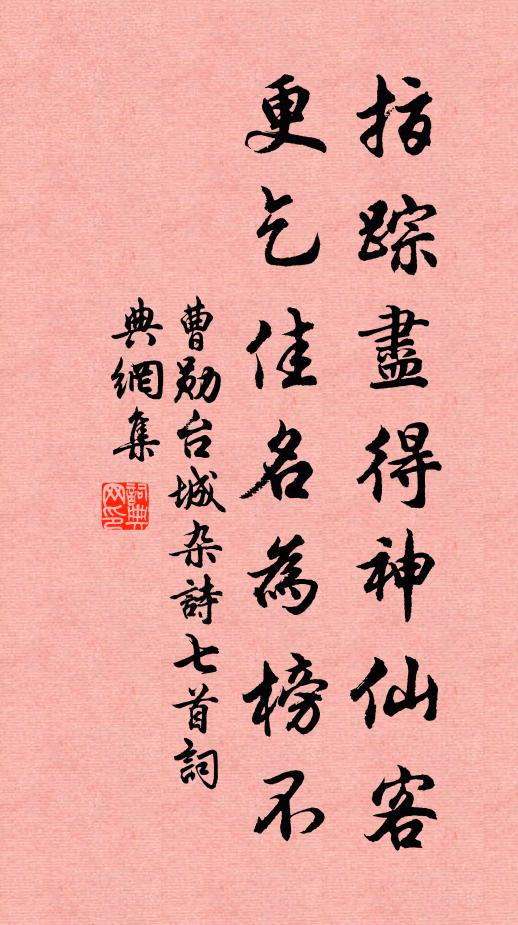 指踪盡得神仙客
更乞佳名為榜不
曹勛台城杂詩七首詞
典網集
詞典
网印